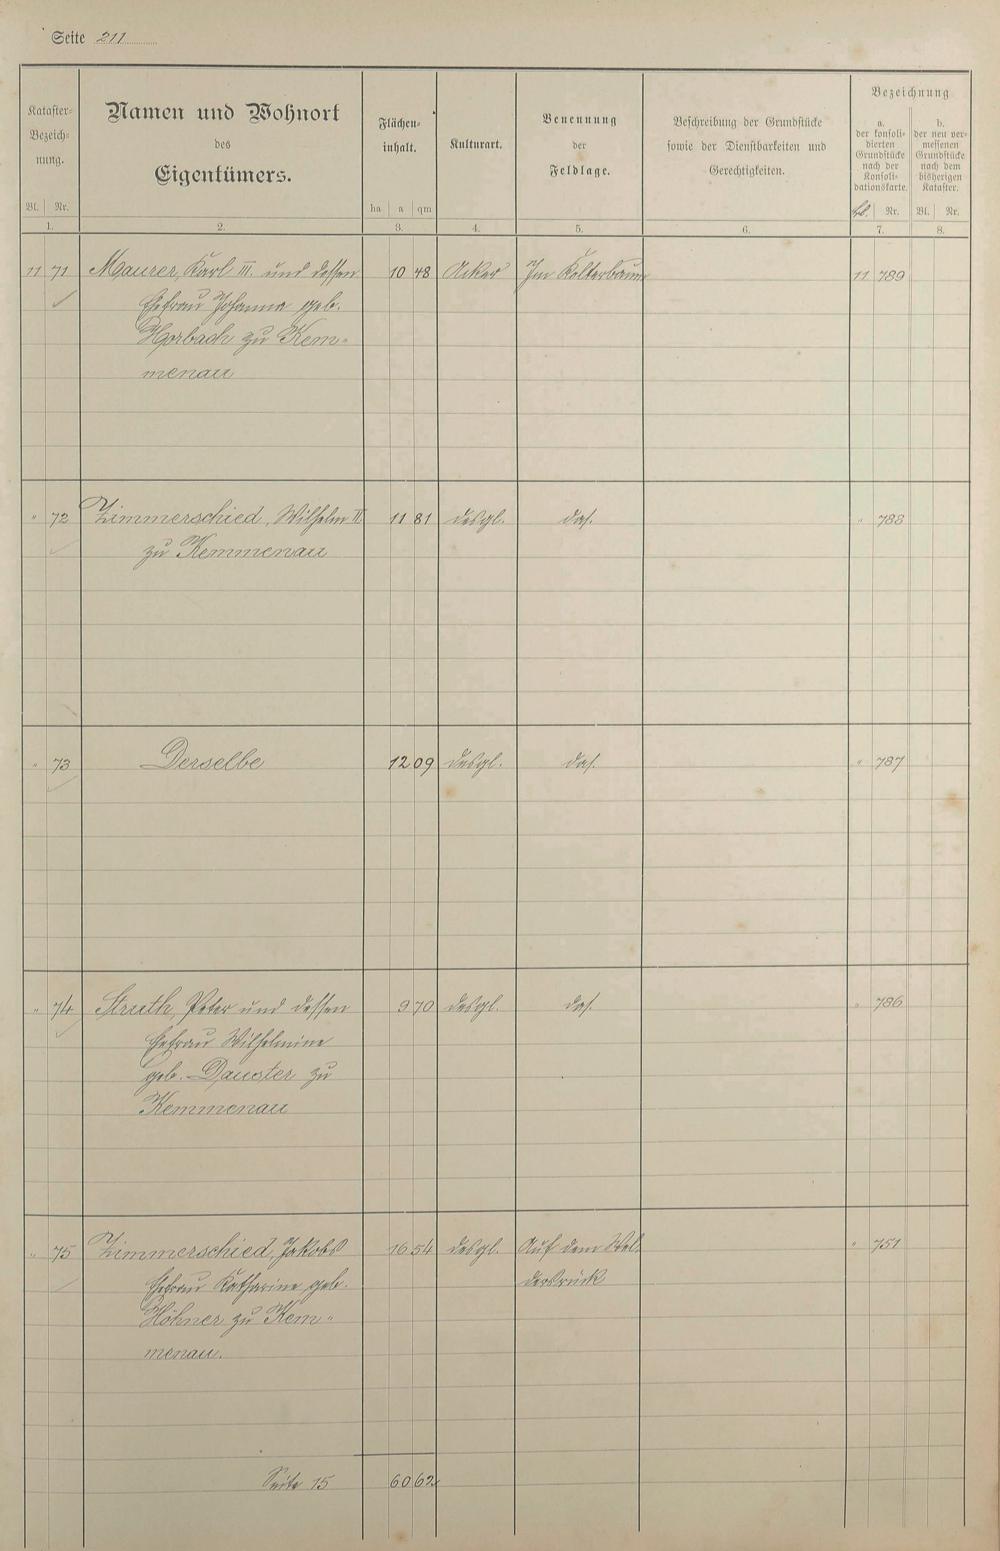 Seite 211
Kataster-
Bezeich-
nung.
Bl. Nr.
Namen und Wohnort
des
Eigentümers.
Flächen-
inhalt.
ha a qm
Kulturart.
Benennung
der
Feldlage.
Beschreibung der Grundstücke
sowie der Dienstbarkeiten und
Gerechtigkeiten.
Bezeichnung
a.
der konsoli-
dierten
Grundstücke
nach der
Konsoli-
dationskarte.
Bl. Nr.
b.
der neu ver-
messenen
Grundstücke
nach dem
bisherigen
Kataster.
Bl. Nr.
1. 2. 3. 4. 5. 6. 7. 8.
11 71 Maurer, Karl III. und dessen 10 48 Acker Im Kolterbaum 11 789
Ehefrau Johanna geb.
Horbach zu Kem-
menau
" 72 Zimmerschied, Wilhelm II. 11 81 desgl. das. " 788
zu Kemmenau
" 73 Derselbe 12 09 desgl. das. " 787
" 74 Struth, Peter und dessen 9 70 desgl. das. " 786
Ehefrau Wilhelmine
geb. Dauster zu
Kemmenau
" 75 Zimmerschied, Jakobs 16 54 desgl. Auf dem " 751
Ehefrau Katharine geb.
Höhner zu Kem-
menau.
Seite 15 60 62